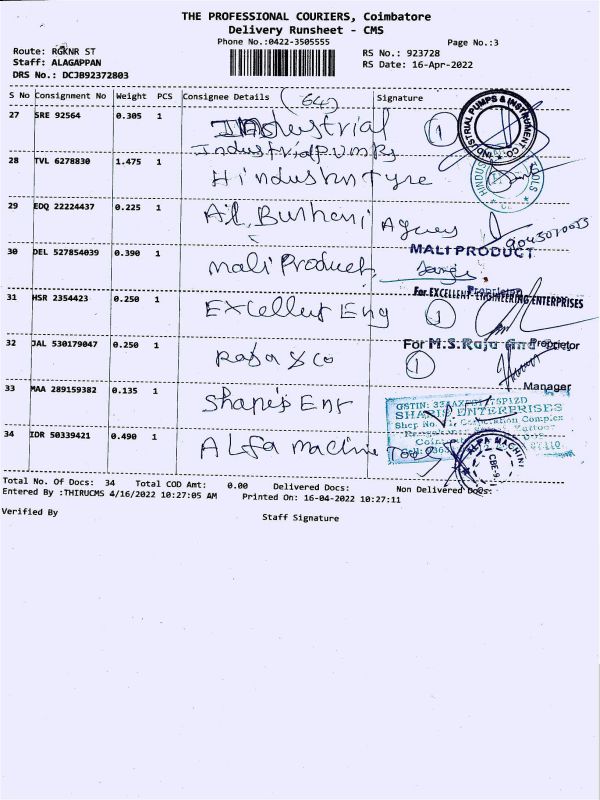 THE PROFESSIONAL COURIERS, Coimbatore
Delivery Runsheet - CMS
Phone No.:0422-3505555 Page No.:3
Route: RGKNR ST RS No.: 923728
Staff: ALAGAPPAN RS Date: 16-Apr-2022
DRS No.: DCJB92372803
S No Consignment No Weight PCS Consignee Details (64) Signature
27 SRE 92564 0.305 1 Industrial 1
Industrial Pumps
INDUSTRIAL PUMPS & INSTRUMENT CO.
28 TVL 6278830 1.475 1 Hindustan Tyre
29 EDQ 22224437 0.225 1 Al. Burhani Agency
MALI PRODUCT
30 DEL 527854039 0.390 1 Mali Product
Proprietor
For EXCELLENT ENGINEERING ENTERPRISES
31 HSR 2354423 0.250 1 Excellent Eng 1
Proprietor
For M.S.Raju and
32 JAL 530179047 0.250 1 Raja & Co 1
Manager
33 MAA 289159382 0.135 1 Sharp's Ent
GSTIN:
ENTERPRISES
Shop No. Corporation Complex
34 IDR 50339421 0.490 1 Alfa Machine Tools
ALFA MACHIN
CBE-9
Total No. Of Docs: 34 Total COD Amt: 0.00 Delivered Docs: Non Delivered Docs:
Entered By :THIRUCMS 4/16/2022 10:27:05 AM Printed On: 16-04-2022 10:27:11
Verified By Staff Signature